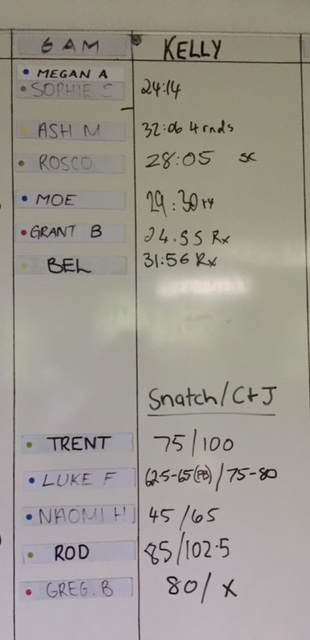 6 AM KELLY
MEGAN A
SOPHIE S 24:14
ASH M 32:06 4 rnds
ROSCO 28:05 sc
MOE 29:30 rx
GRANT B 24.55 Rx
BEL 31:56 Rx
Snatch/C+J
TRENT 75/100
LUKE F 62.5-65(PB)/75-80
NAOMI H 45/65
ROD 85/102.5
GREG.B 80/X